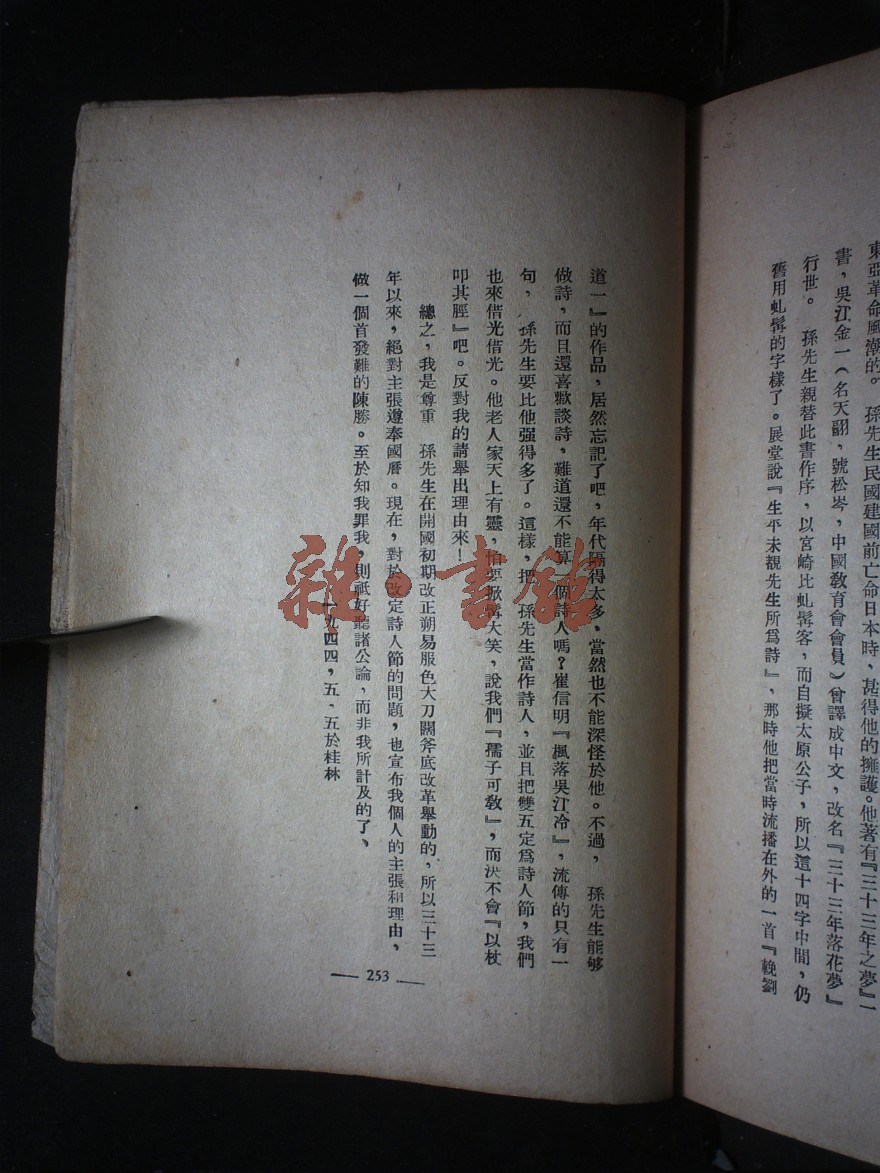 東亞革命風潮的。　孫先生民國建國前亡命日本時，甚得他的擁護。他著有『三十三年之夢』一
書，吳江金一（名天翮，號松岑，中國敎育會會員）曾譯成中文，改名『三十三年落花夢』
行世。　孫先生親替此書作序，以宮崎比虬髯客，而自擬太原公子，所以這十四字中間，仍
舊用虬髯的字樣了。展堂說『生平未覩先生所爲詩』，那時他把當時流播在外的一首『輓劉
道一』的作品，居然忘記了吧，年代隔得太多，當然也不能深怪於他。不過，　孫先生能够
做詩，而且還喜歡談詩，難道還不能算一個詩人嗎？崔信明『楓落吳江冷』，流傳的只有一
句，　孫先生要比他强得多了。這樣，把　孫先生當作詩人，並且把雙五定爲詩人節，我們
也來借光借光。他老人家天上有靈，怕要掀髯大笑，說我們『孺子可敎』，而决不會『以杖
叩其脛』吧。反對我的請舉出理由來！
總之，我是尊重　孫先生在開國初期改正朔易服色大刀闊斧底改革舉動的，所以三十三
年以來，絕對主張遵奉國曆。現在，對於改定詩人節的問題，也宣布我個人的主張和理由，
做一個首發難的陳勝。至於知我罪我，則祇好聽諸公論，而非我所計及的了、
一九四四，五、五於桂林
253
雜·書館